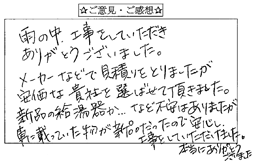 ☆ご意見・ご感想☆
雨の中、工事をしていただき
ありがとうございました。
メーカーなどで見積りをとりましたが
安価な貴社を選ばせて頂きました。
新品の給湯器か…など不安はありましたが
載っていた物が新品だったので安心し、
工事をしていただいました。
本当にありがとう
ございました